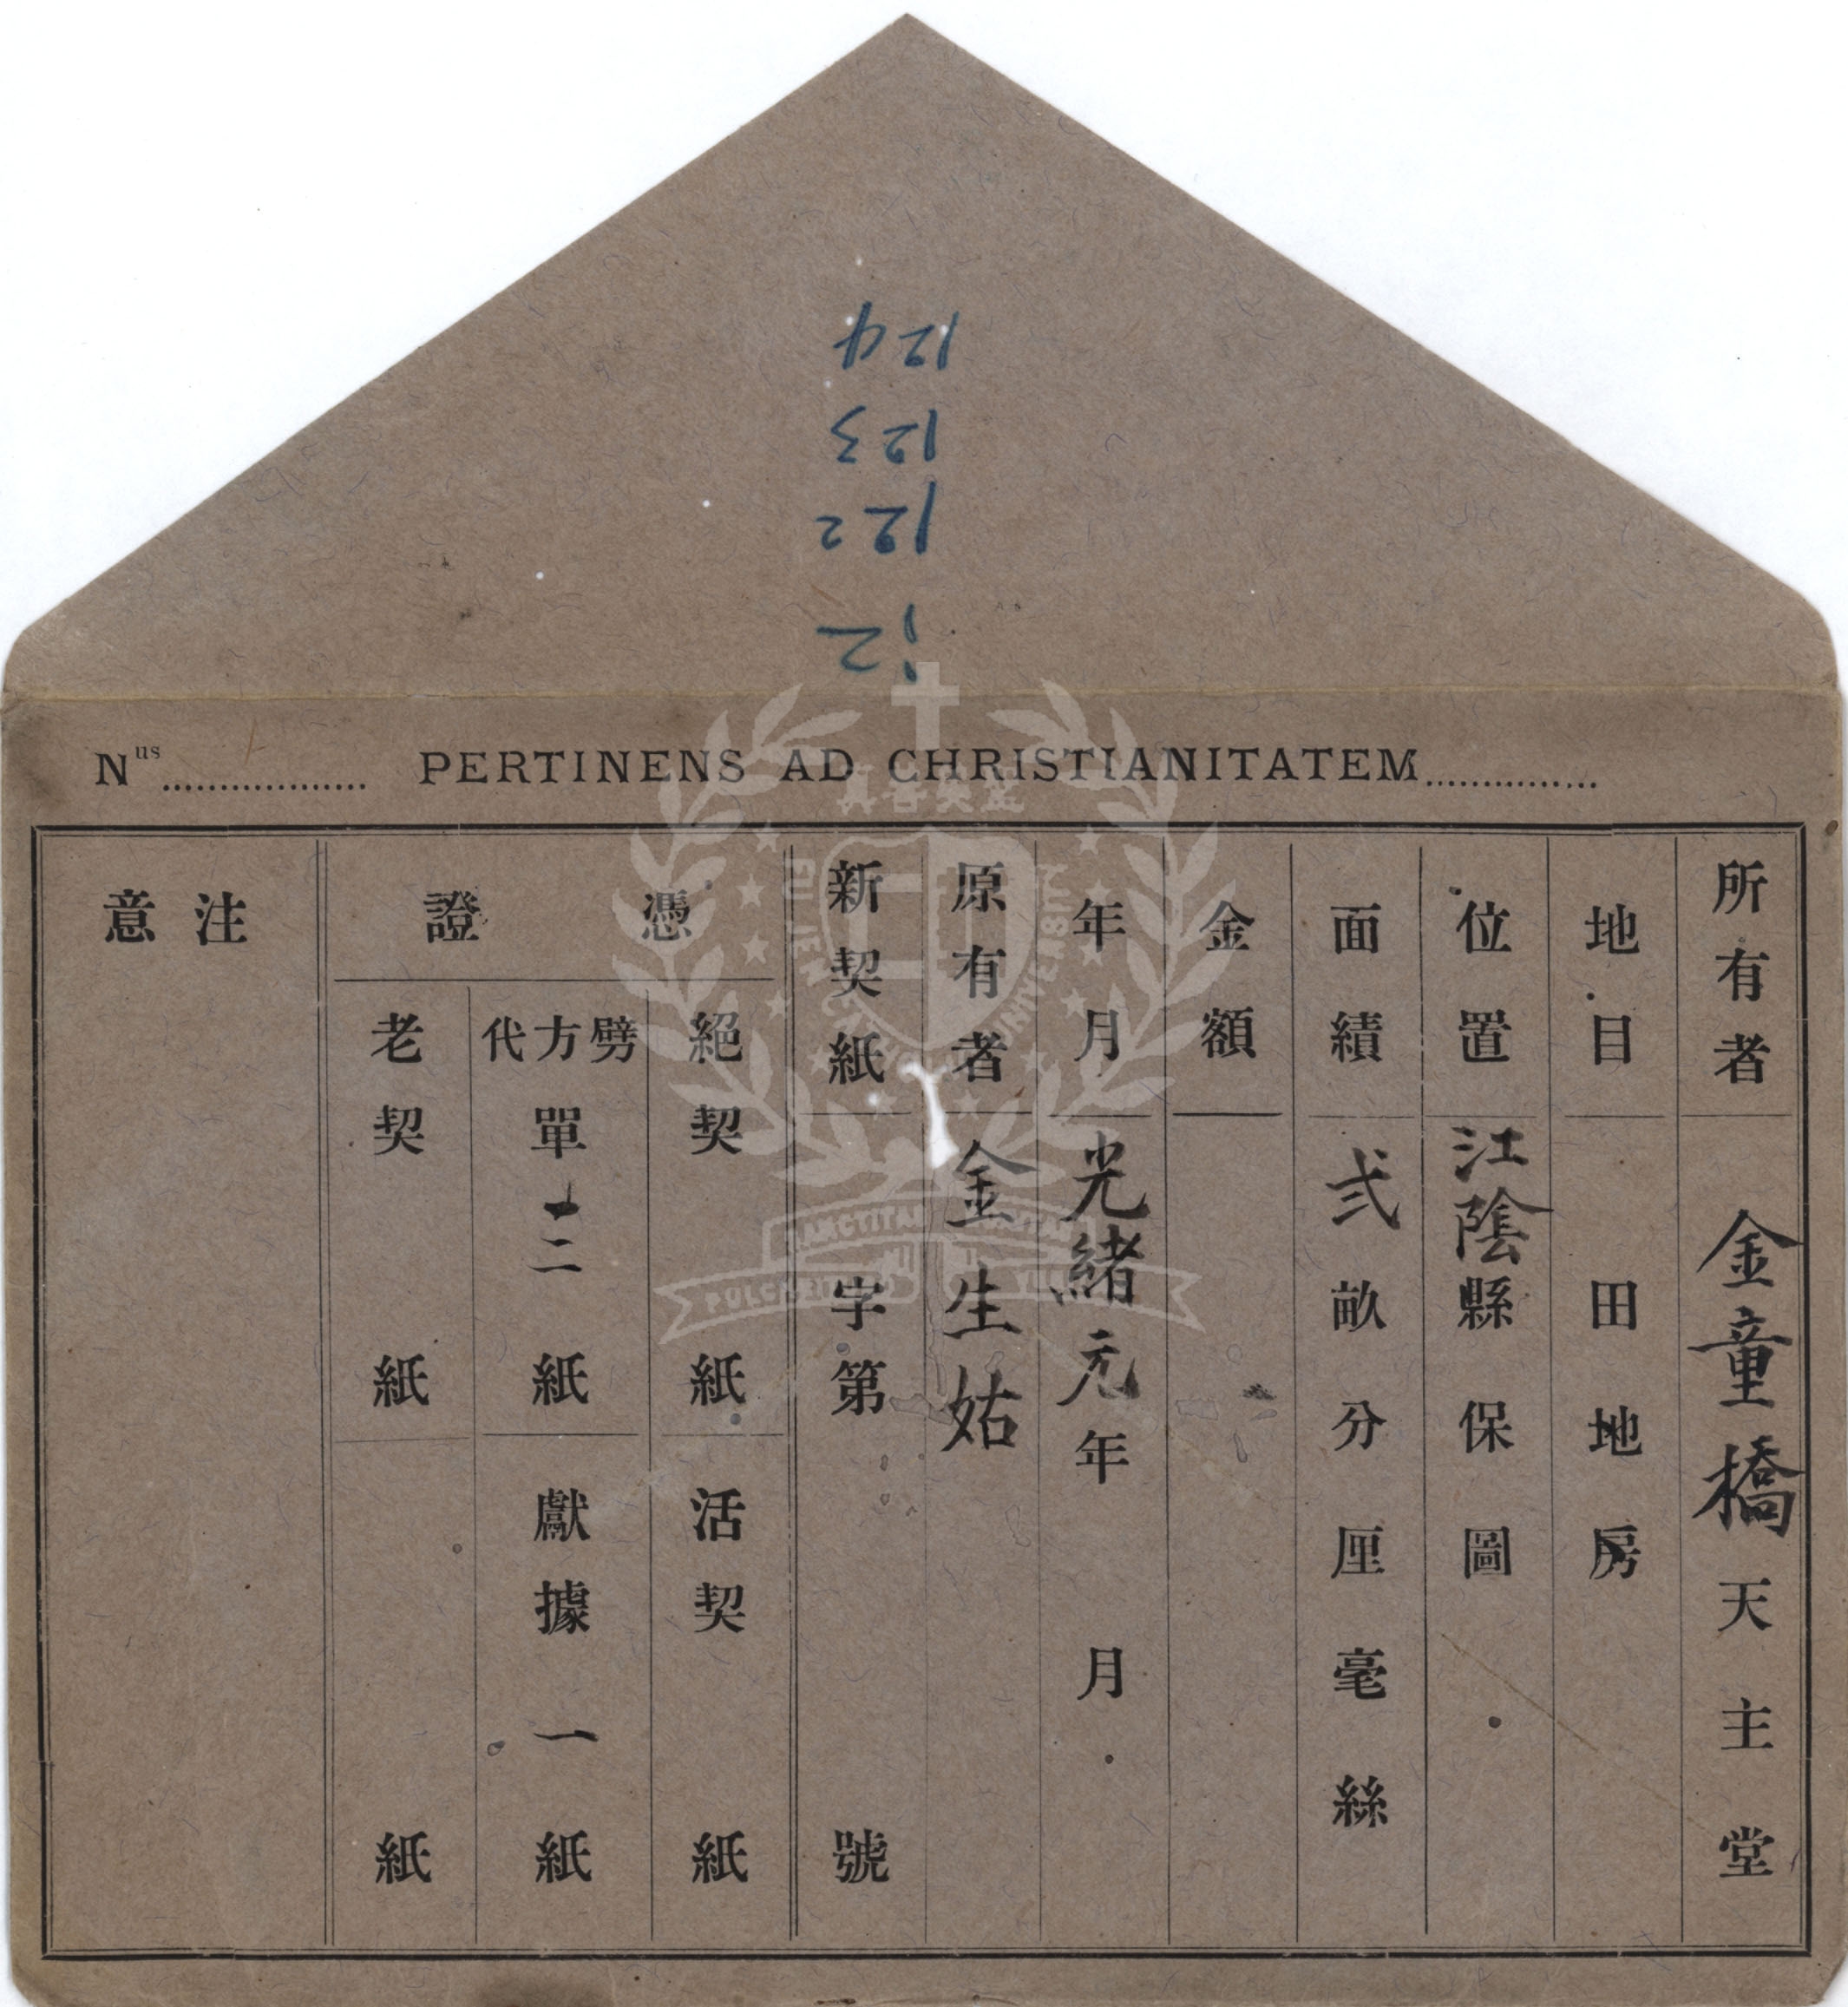 124
123
122
江
Nus PERTINENS AD CHRISTIANITATEM
所有者 金童橋天主堂
地目 田地房
位置 江陰縣保圖
面績 弍畝分厘毫絲
金額
年月 光緒元年月
原有者 金生姑
新契紙 字第號
憑證
絕契紙 活契紙
劈方代單二紙 獻據一紙
老契紙 紙
注意
真善美聖